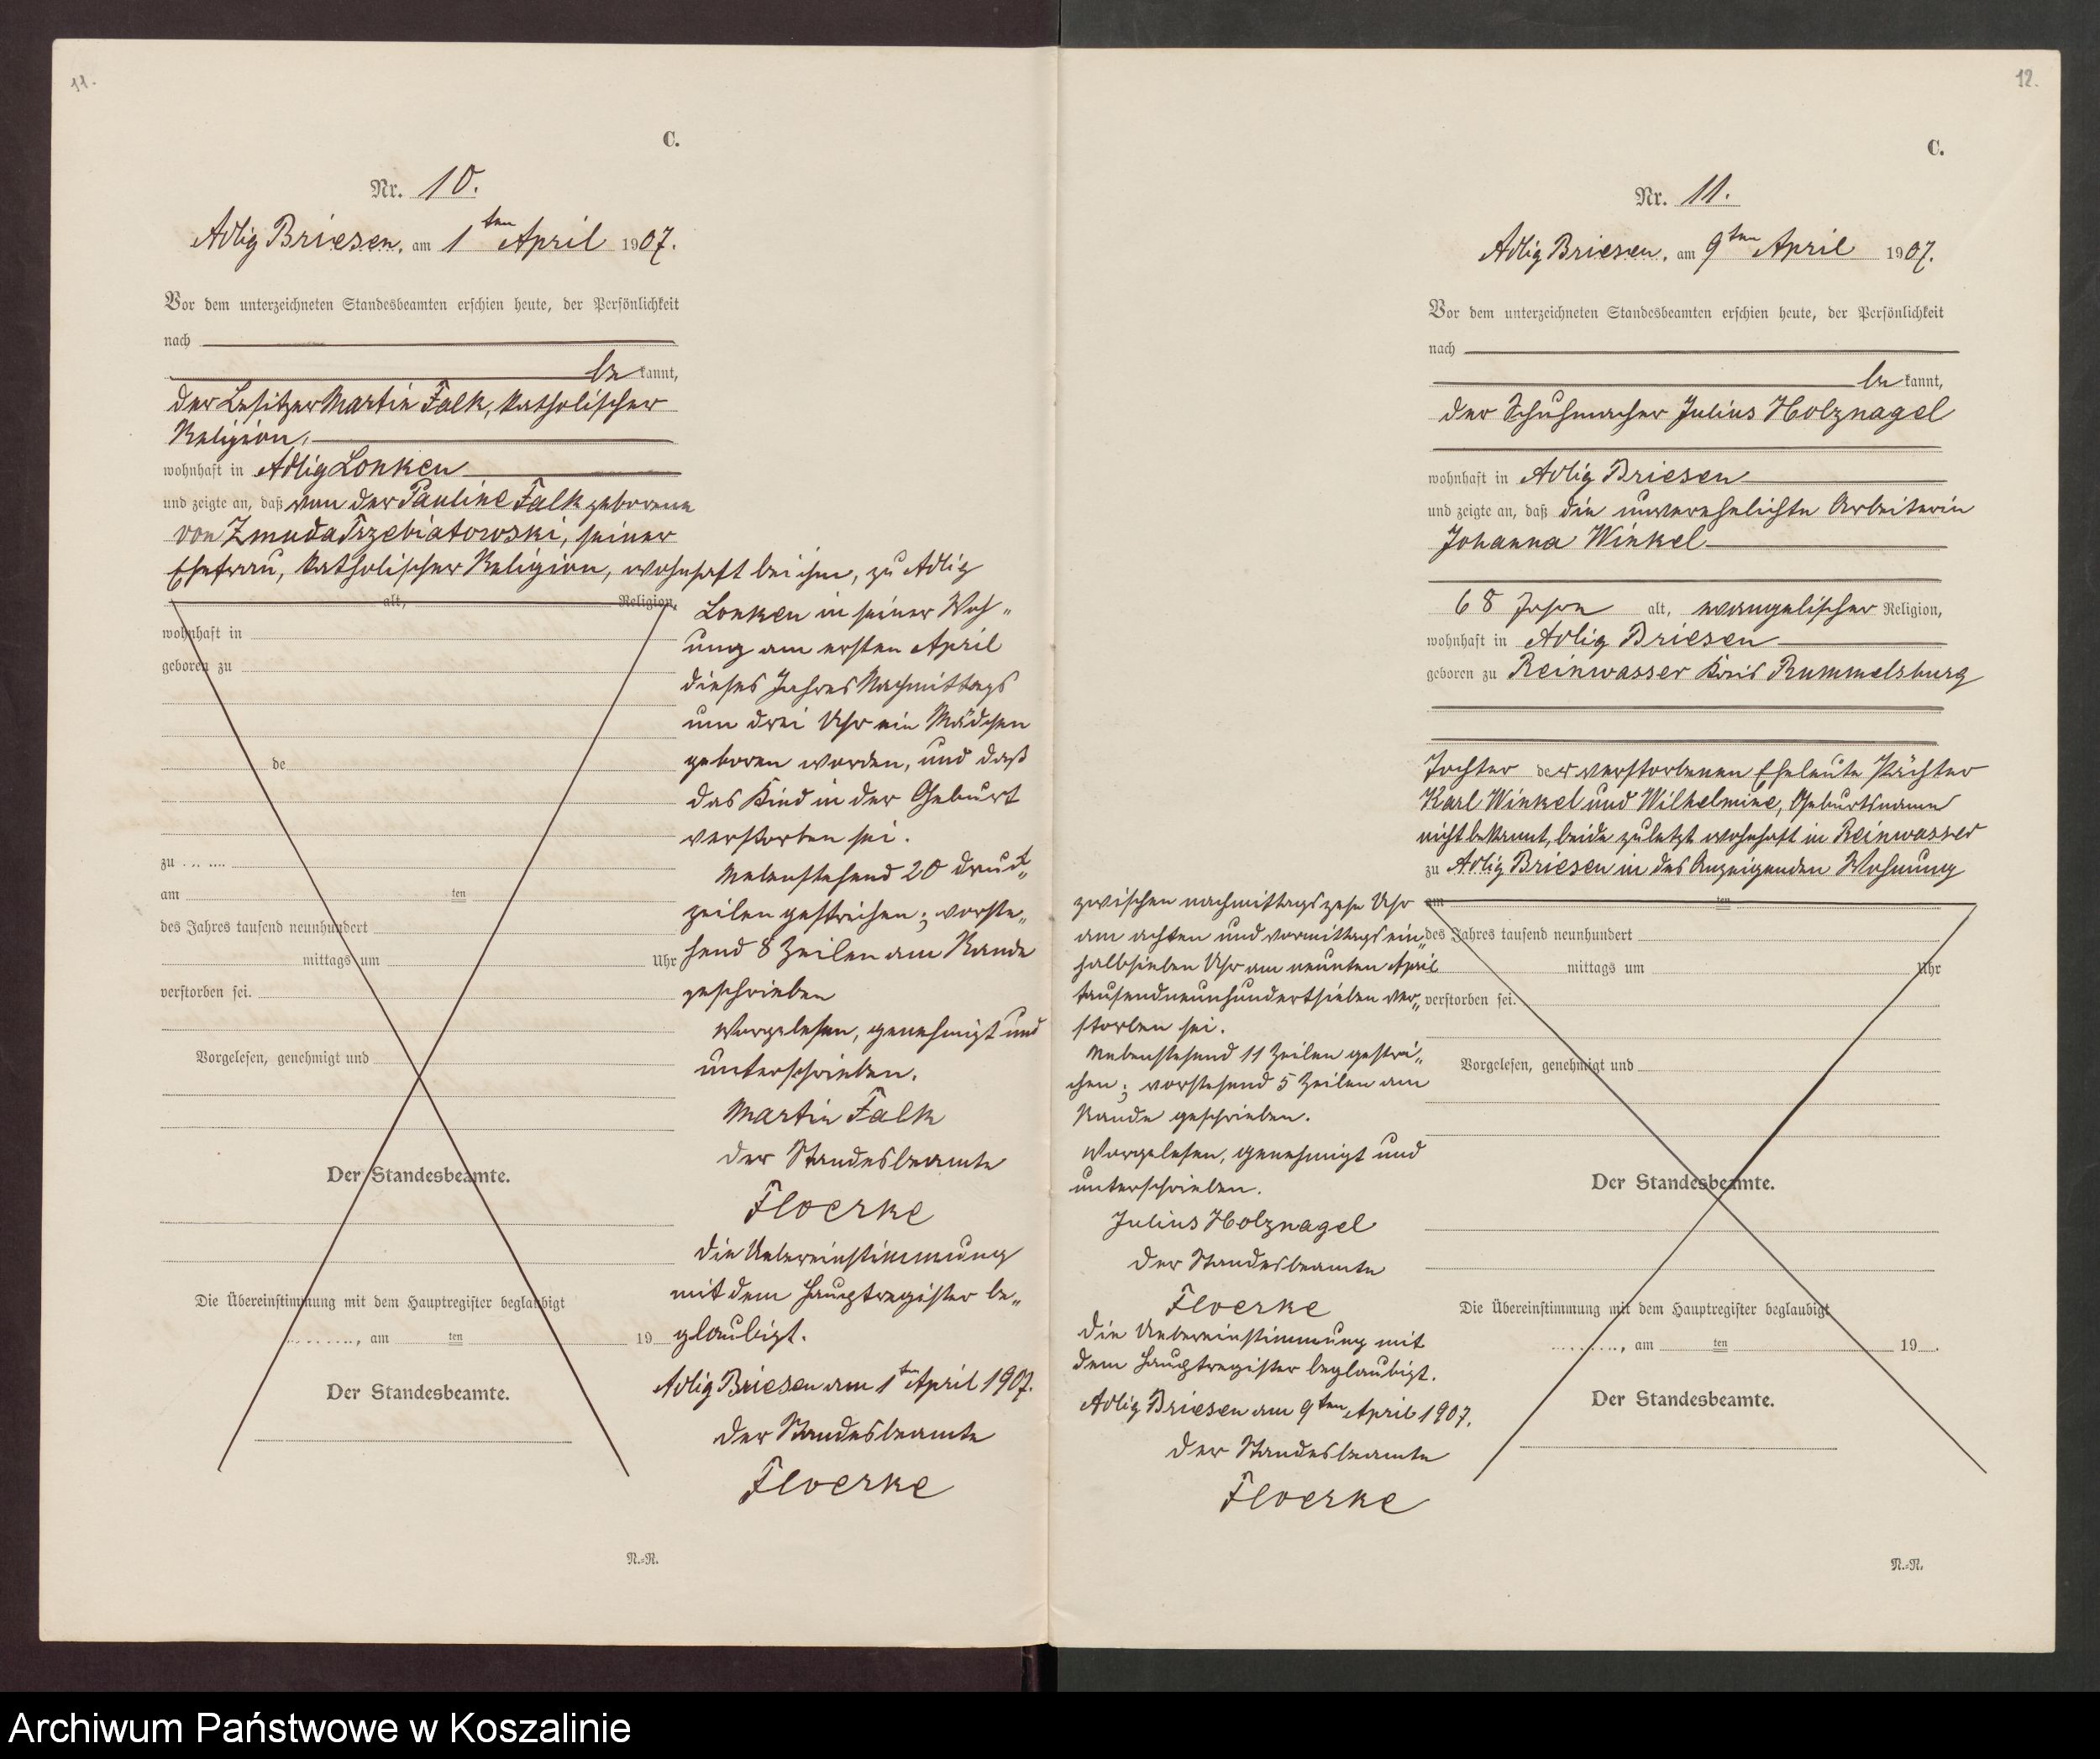 11.
C.
Nr. 10.
Adlig Briesen, am 1ten April 1907.
Vor dem unterzeichneten Standesbeamten erschien heute, der Persönlichkeit
nach
be kannt,
der Besitzer Martin Falk, katholischer
Religion,
wohnhaft in Adlig Lonken
und zeigte an, daß von der Pauline Falk geborene
von Zmuda Trzebiatowski, seiner
Ehefrau, katholischer Religion, wohnhaft bei ihm, zu Adlig
alt, Religion,
wohnhaft in
geboren zu
de
zu
am ten
des Jahres tausend neunhundert
mittags um Uhr
verstorben sei.
Vorgelesen, genehmigt und
Der Standesbeamte.
Die Übereinstimmung mit dem Hauptregister beglaubigt
, am ten 19
Der Standesbeamte.
Lonken in seiner Woh-
ung am ersten April
dieses Jahres Nachmittags
um drei Uhr ein Mädchen
geboren worden, und daß
das Kind in der Geburt
verstorben sei.
Nebenstehend 20 Druck-
zeilen gestrichen; vorste-
hend 8 Zeilen am Rande
geschrieben
Vorgelesen, genehmigt und
unterschrieben.
Martin Falk
Der Standesbeamte
Floerke
Die Uebereinstimmung
mit dem Hauptregister be-
glaubigt.
Adlig Briesen am 1ten April 1907.
Der Standesbeamte
Floerke
N.=N.
12.
C.
Nr. 11.
Adlig Briesen, am 9ten April 1907.
Vor dem unterzeichneten Standesbeamten erschien heute, der Persönlichkeit
nach
be kannt,
der Schuhmacher Julius Holznagel
wohnhaft in Adlig Briesen
und zeigte an, daß die unverehelichte Arbeiterin
Johanna Winkel
68 Jahre alt, evangelischer Religion,
wohnhaft in Adlig Briesen
geboren zu Reinwasser Kreis Rummelsburg
Tochter der verstorbenen Eheleute Pächter
Karl Winkel und Wilhelmine, Geburtsname
nicht bekannt, beide zuletzt wohnhaft in Reinwasser
zu Adlig Briesen in des Anzeigenden Wohnung
am ten
des Jahres tausend neunhundert
mittags um Uhr
verstorben sei.
Vorgelesen, genehmigt und
Der Standesbeamte.
Die Übereinstimmung mit dem Hauptregister beglaubigt
, am ten 19
Der Standesbeamte.
zwischen nachmittags zehn Uhr
am achten und vormittags ein-
halbsieben Uhr am neunten April
tausendneunhundertsieben ver-
storben sei.
Nebenstehend 11 Zeilen gestri-
chen; vorstehend 5 Zeilen am
Rande geschrieben.
Vorgelesen, genehmigt und
unterschrieben.
Julius Holznagel
Der Standesbeamte
Floerke
Die Uebereinstimmung mit
dem Hauptregister beglaubigt.
Adlig Briesen am 9ten April 1907.
Der Standesbeamte
Floerke
N.=N.
Archiwum Państwowe w Koszalinie